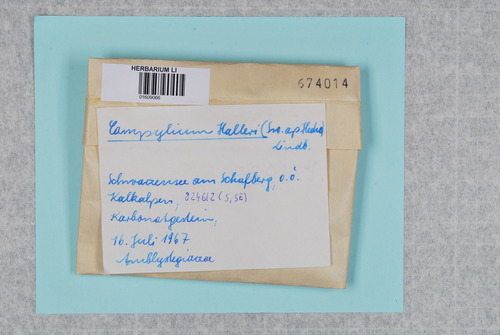 HERBARIUM LI
01609066
674014
Campylium Halleri (Sw. ap. Hedw.)
Lindb.
Schwarzensee am Schafberg, O.Ö.
Kalkalpen, 8246/2 (S, SE)
Karbonatgestein,
16. Juli 1967
Amblystegiaceae